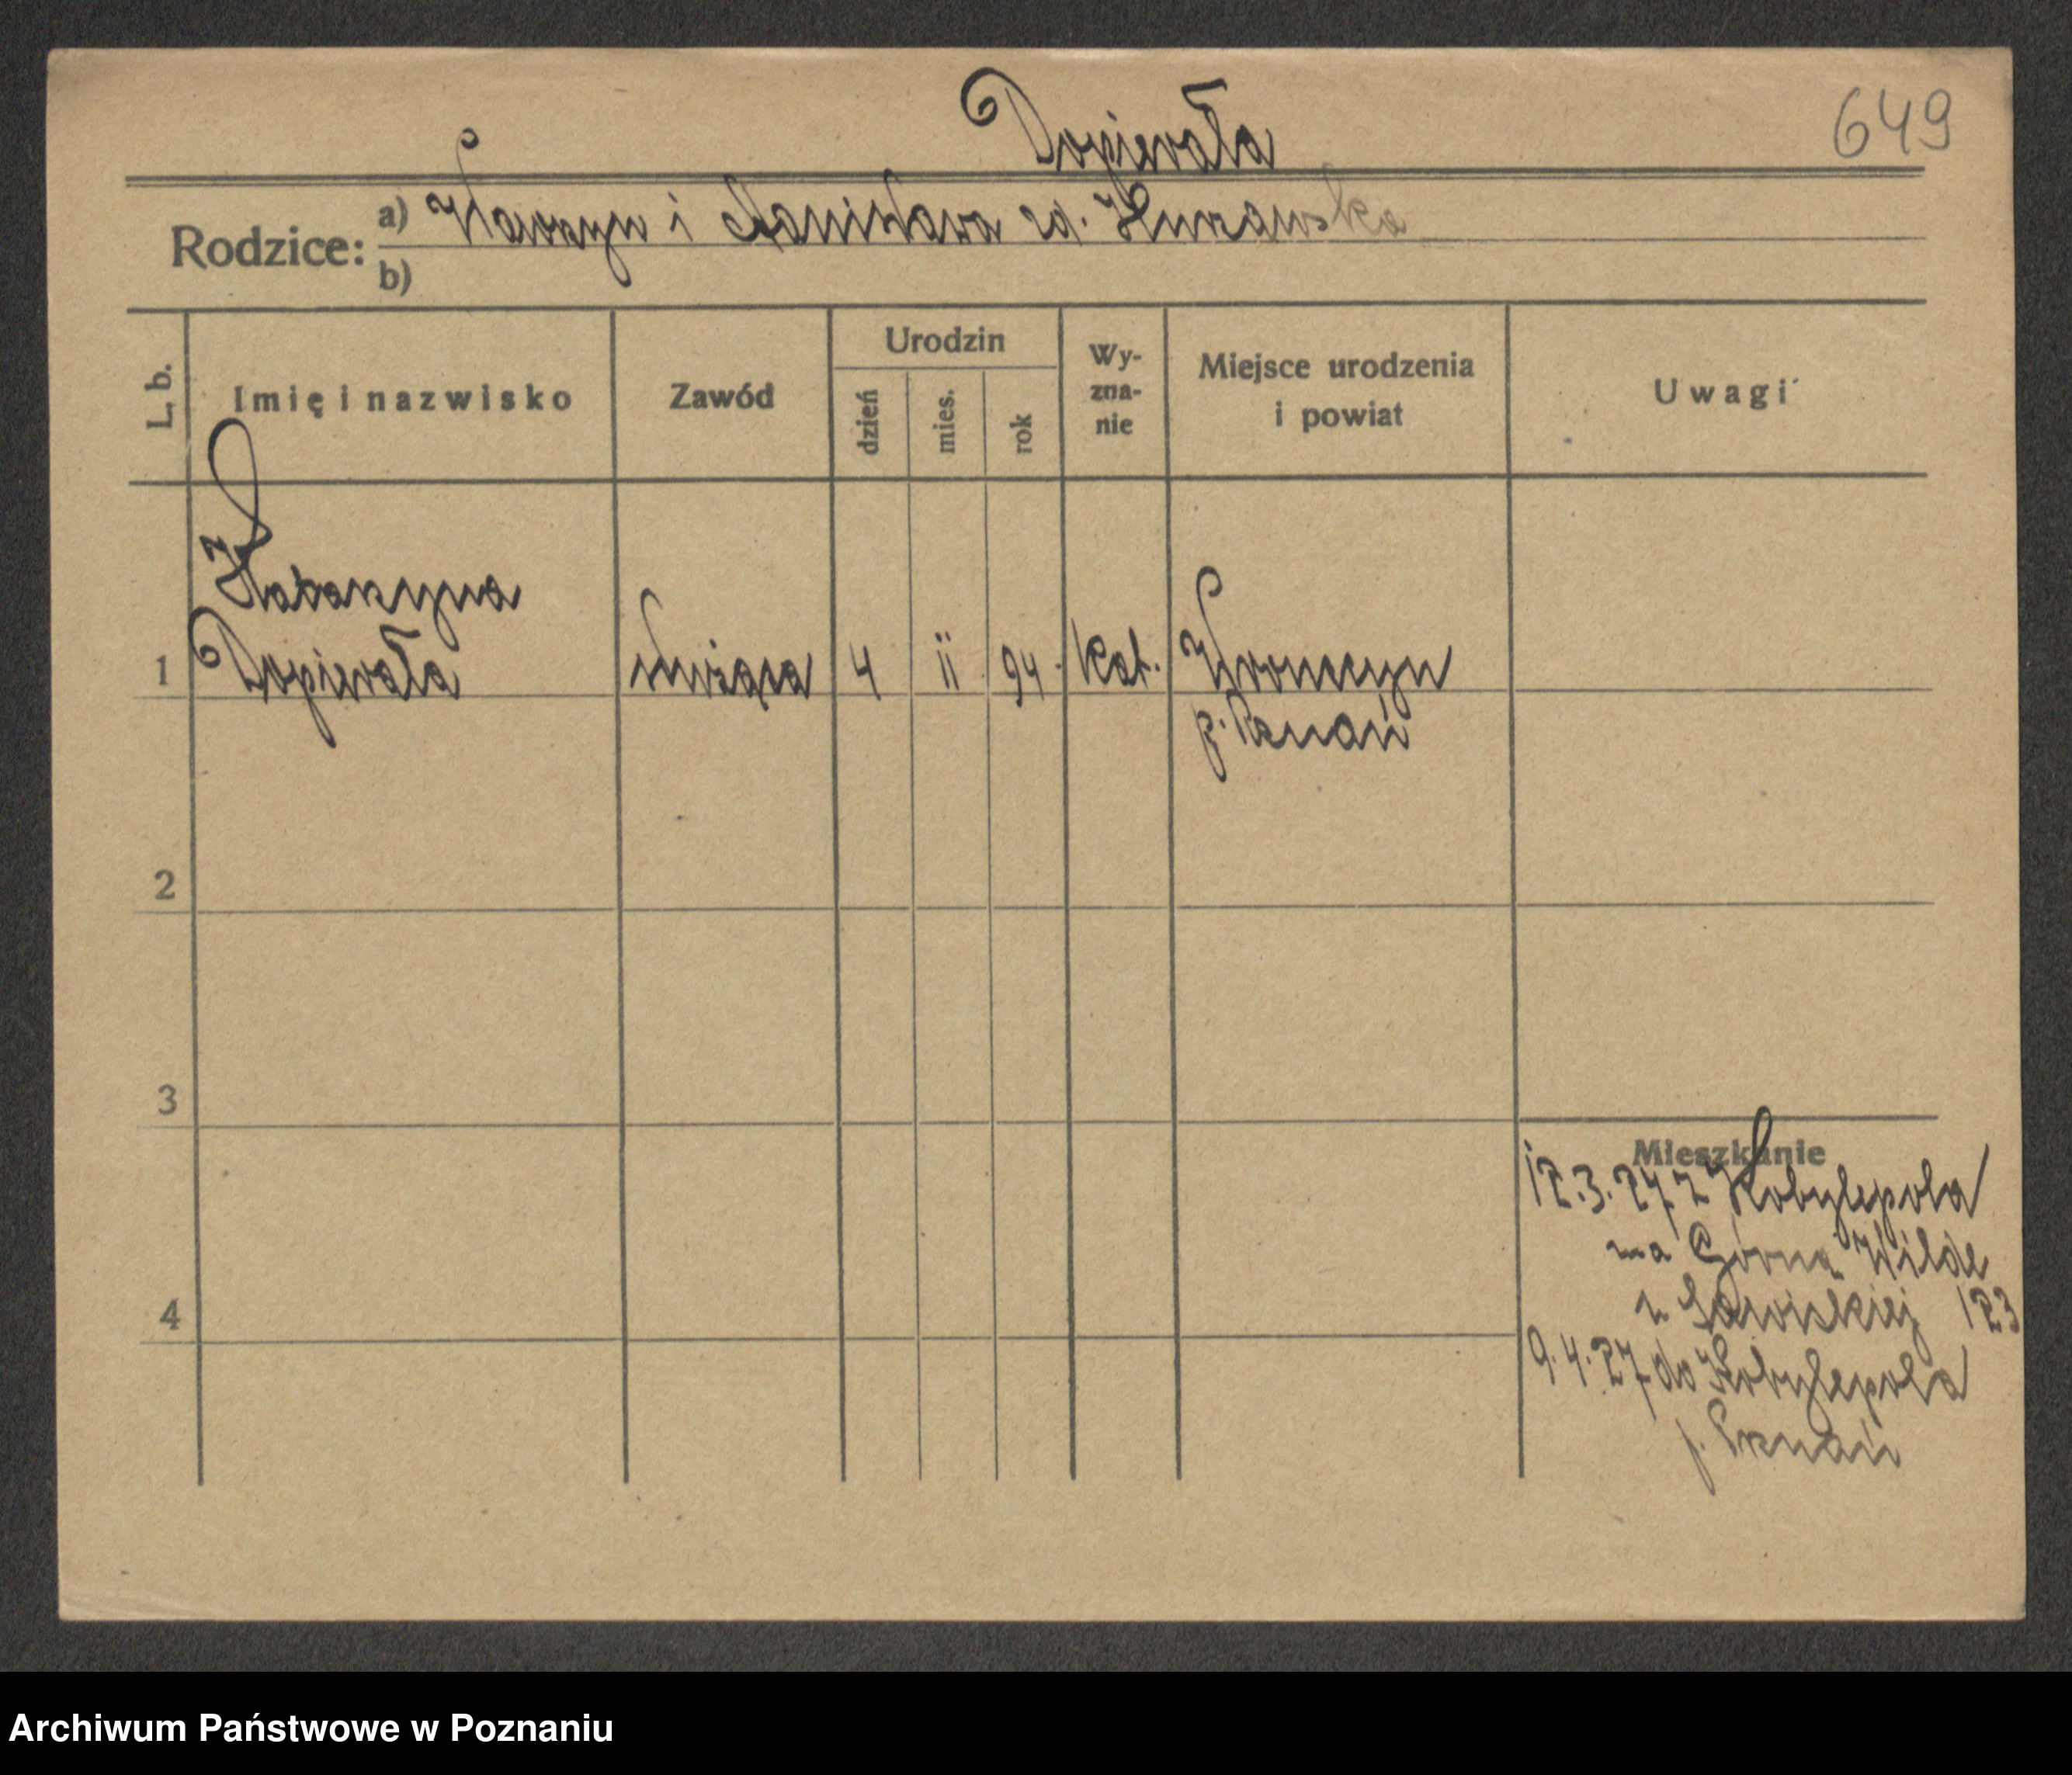 Dopierała
649
Rodzice: a) Wawrzyn i Stanisława zd. Żurawska
b)
L. b. Imię i nazwisko Zawód Urodzin dzień mies. rok Wy-zna-nie Miejsce urodzenia i powiat Uwagi
Katarzyna
1 Dopierała służąca 4 11 94. kat. Wronczyn
p. Poznań
2
3
Mieszkanie
12.3.27 z Kobylepola
na Górną Wildę
4
123
9.4.27 do Kobylepola
p. Poznań
Archiwum Państwowe w Poznaniu